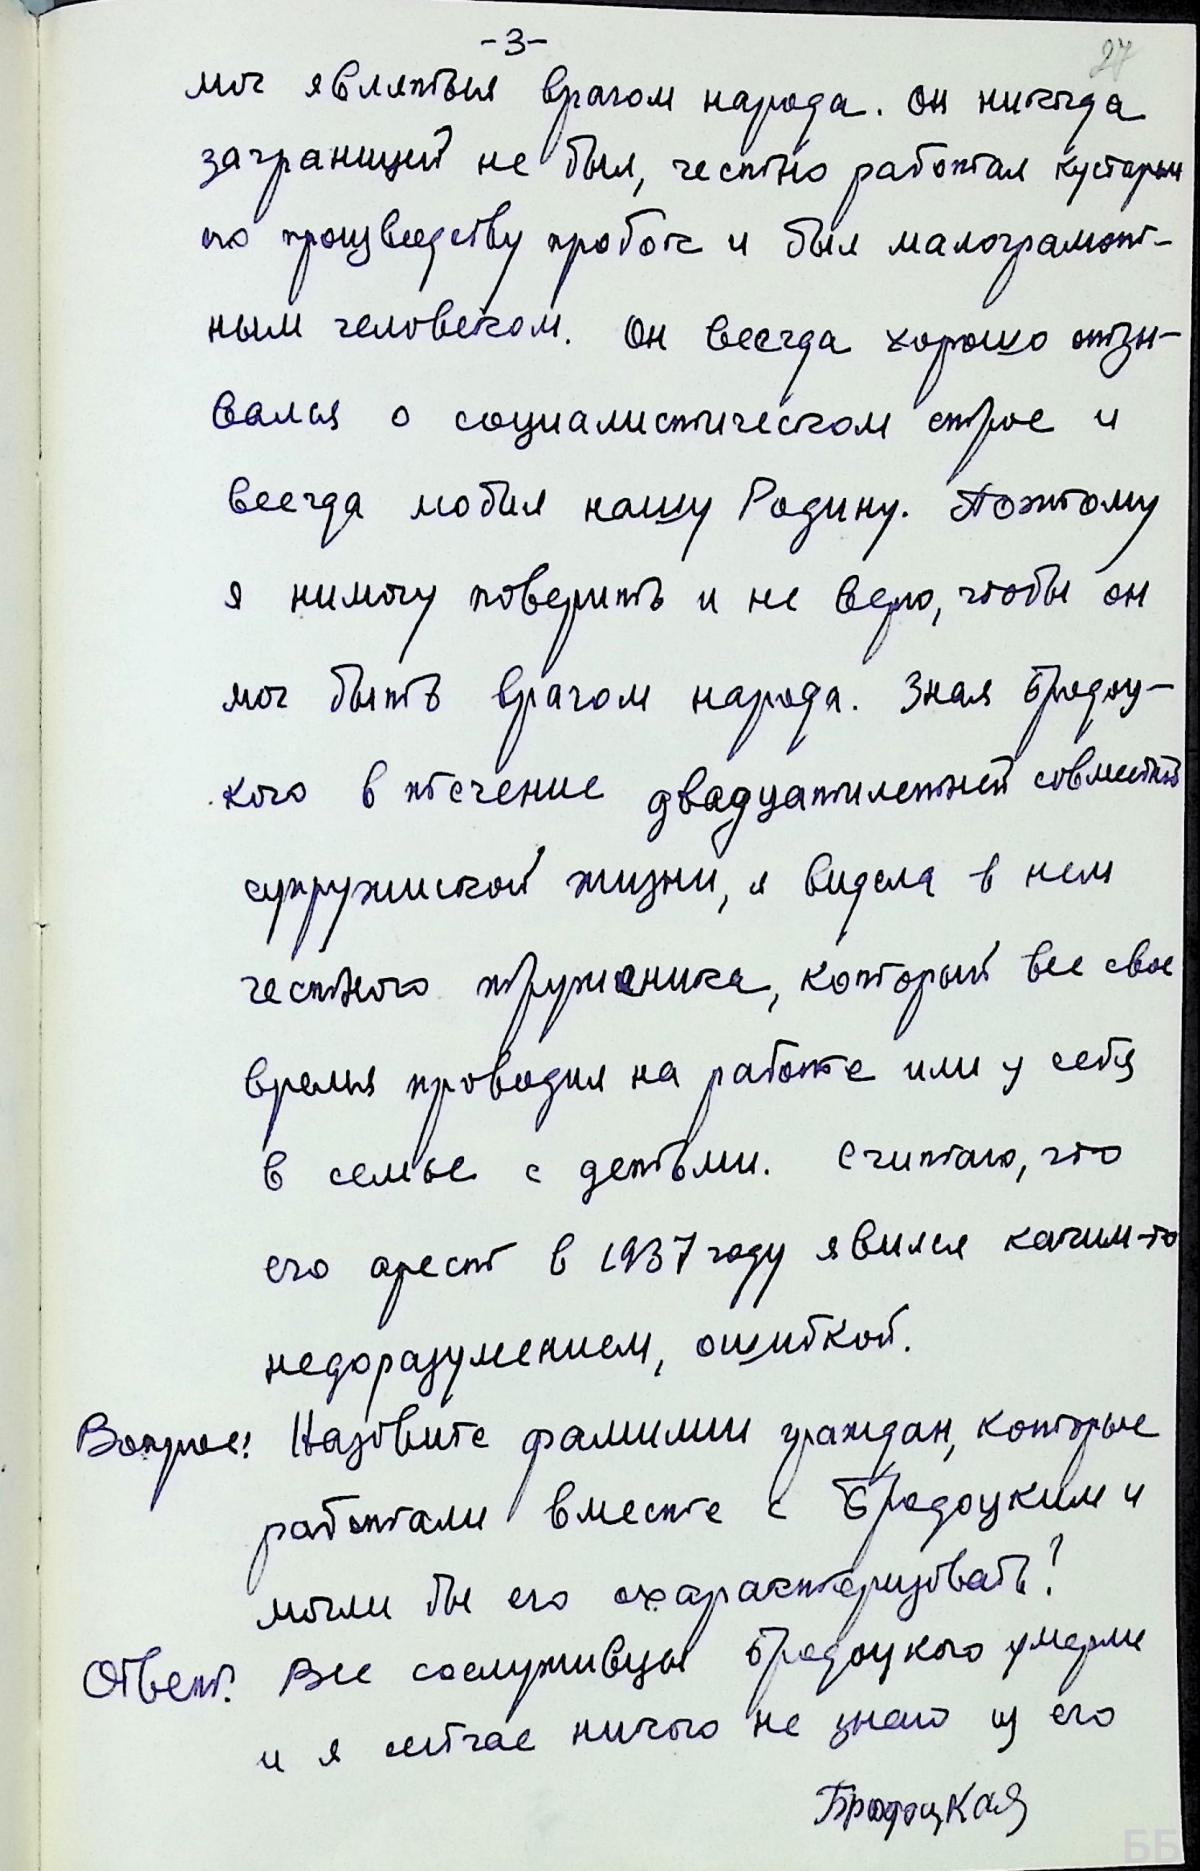 -3-
27
мог являться врагом народа. Он никогда
заграницей не был, честно работал кустарем
по производству пробок и был малограмот-
ным человеком. Он всегда хорошо отзы-
вался о социалистическом строе и
всегда любил нашу Родину. Поэтому
я нимогу поверить и не верю, чтобы он
мог быть врагом народа. Зная Бродоц-
кого в течение двадцатилетней совместной
супружиской жизни, я видела в нем
честного труженика, который все свое
время проводил на работе или у себя
в семье с детьми. Считаю, что
его арест в 1937 году явился каким-то
недоразумением, ошибкой.
Вопрос: Назовите фамилии граждан, которые
работали вместе с Бродоцким и
могли бы его охарактеризовать?
Ответ: Все сослуживцы Бродоцкого умерли
и я сейчас никого не знаю из его
Бродоцкая
ББ